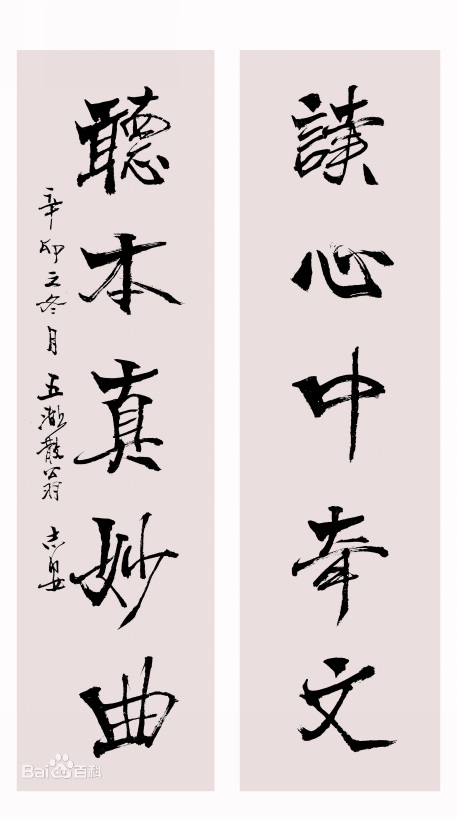 讀心中奇文
聽本真妙曲
辛卯之冬月 五湖散翁 志
Bai百科